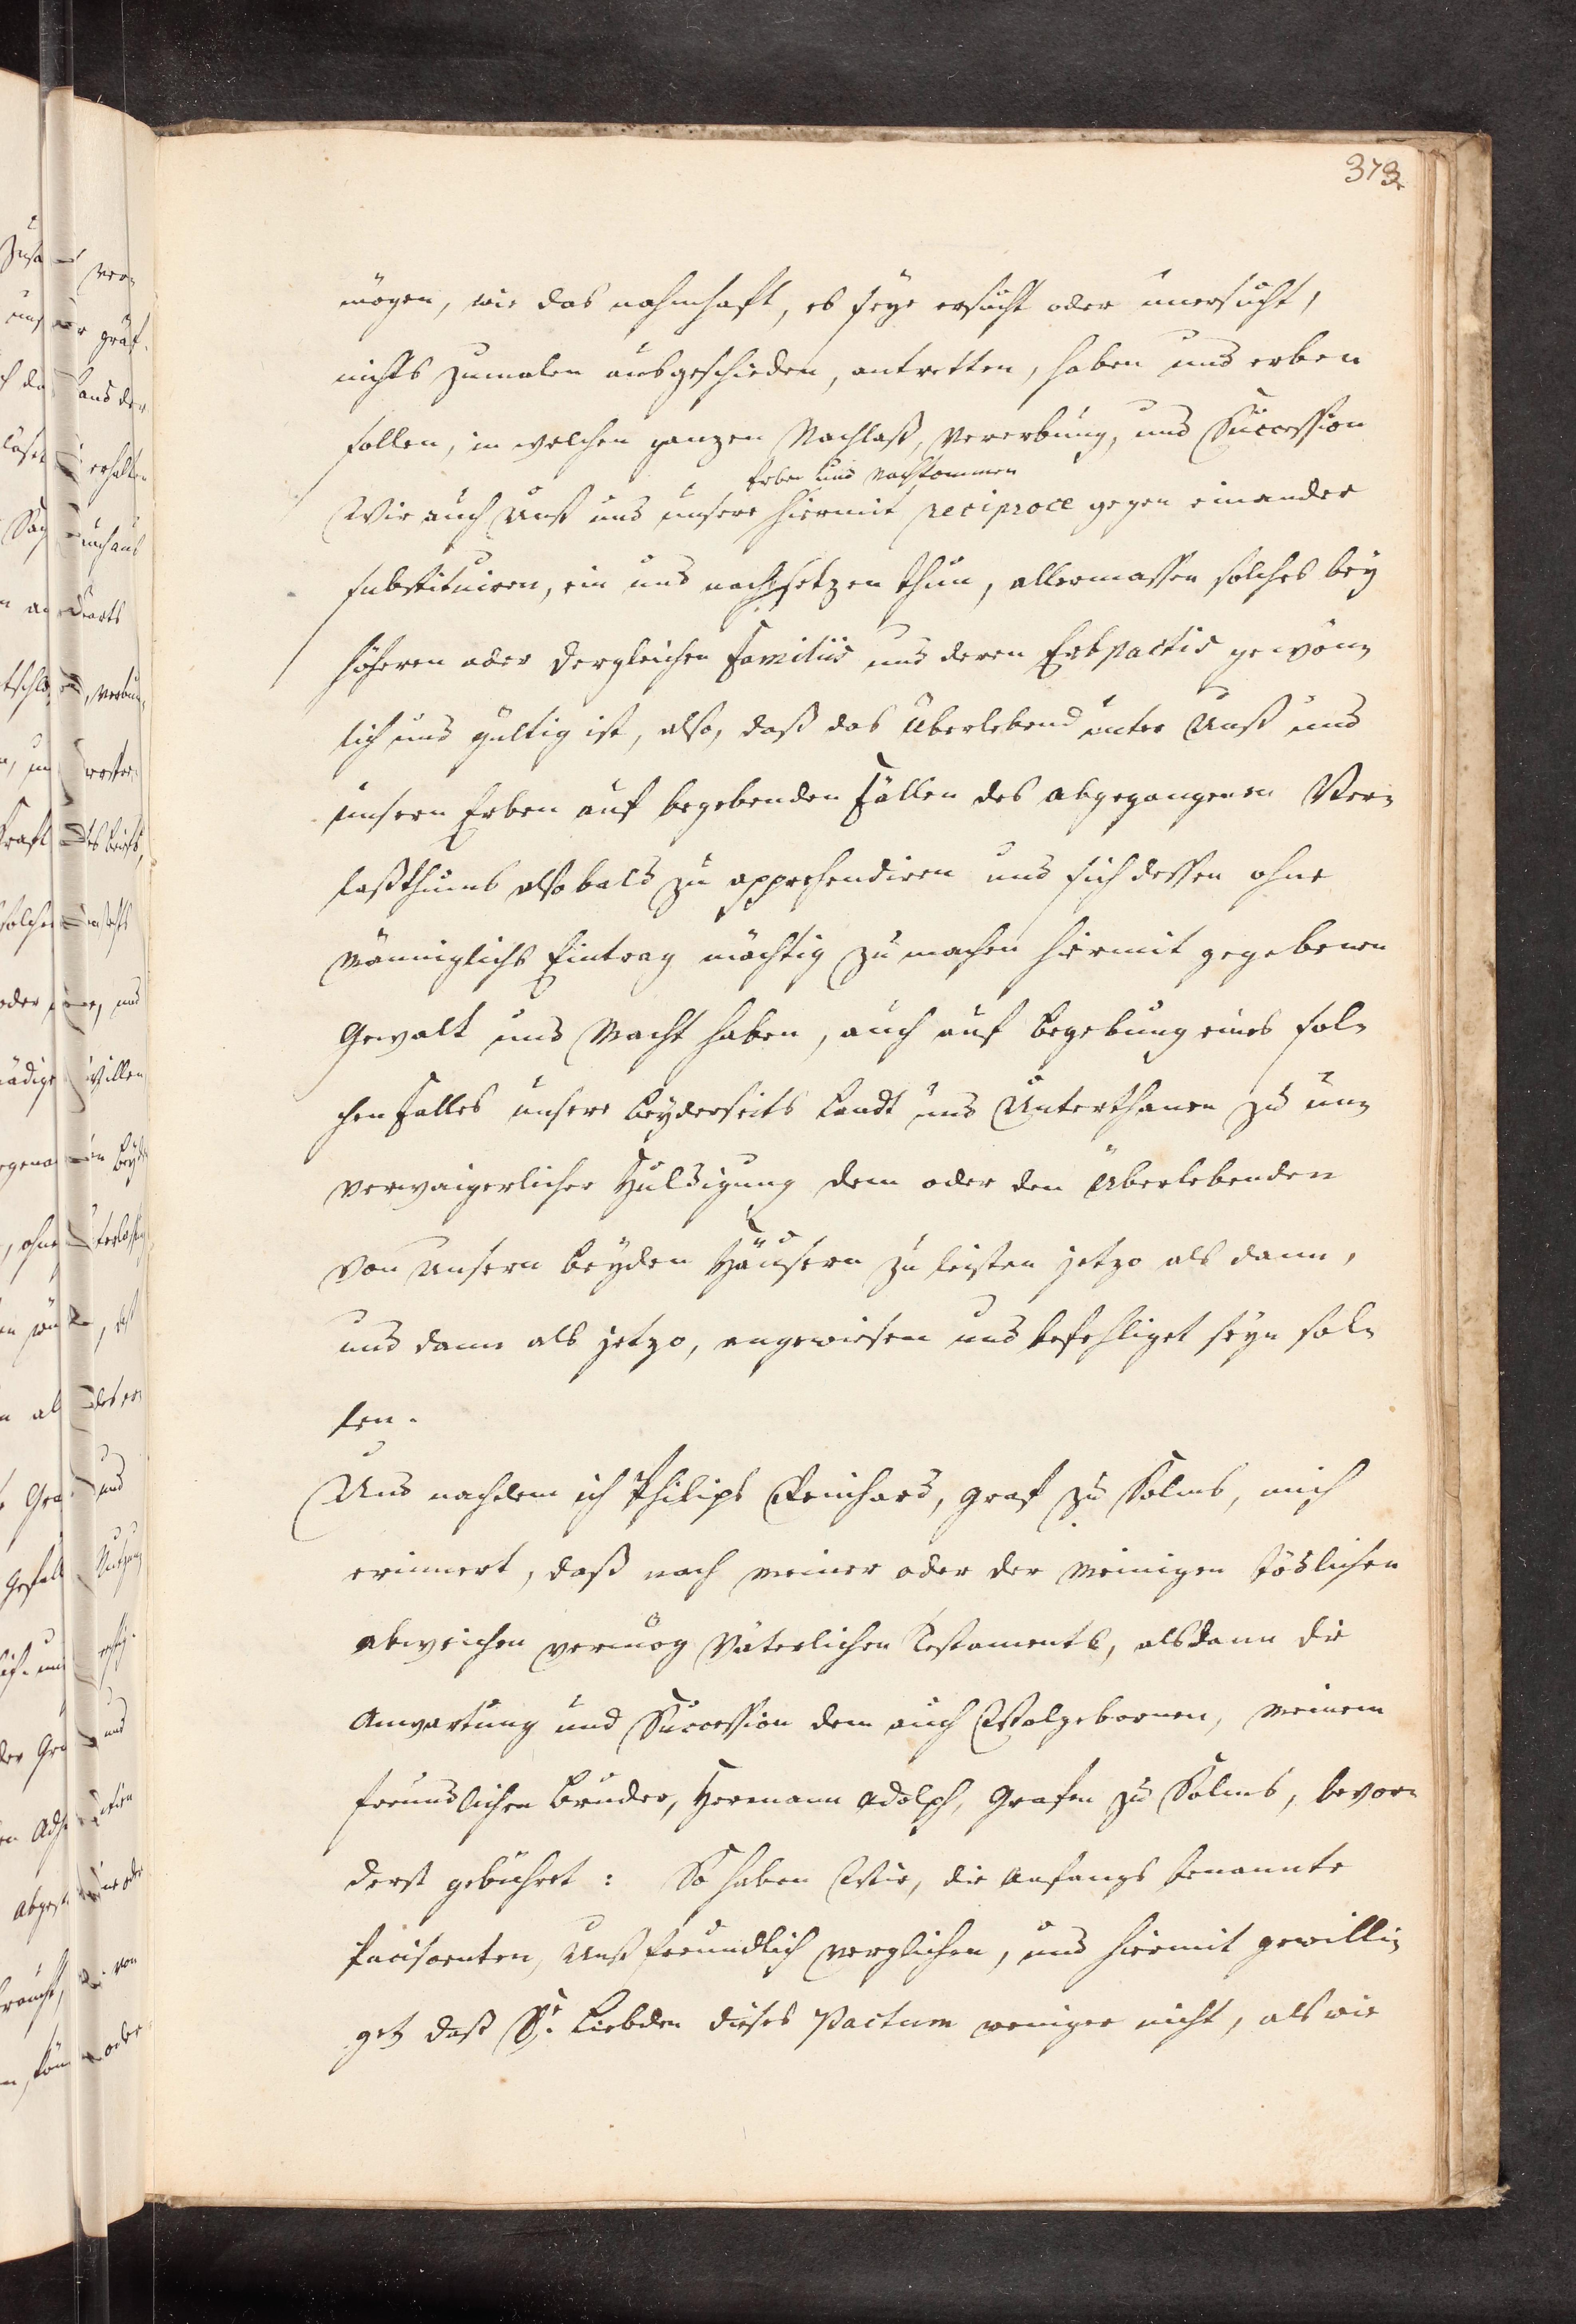 373.
mögen, wie das nahmhaft, es seye ersucht oder unersucht,
nichts zumalen ausgeschieden, antretten, haben und erben
sollen, in welchen ganzen Nachlaß, Vererbung, und Succession
Erben und Nachkommen
Wir auch Unß und unsere hiermit reciproce gegen einander
substituiren, ein und nachsetzen thun, allermassen solches bey
höheren oder dergleichen Familiis und deren Erbpactis gewön-
lich und gültig ist, also, daß das Überlebend unter Unß und
unsern Erben auf begebenden Fällen des abgegangenen Ver-
laßthums alsobald zu apprehendiren und sich dessen ohne
männiglichs Eintrag mächtig zu machen hiermit gegebenen
Gewalt und Macht haben, auch auf Begebung eines sol-
chen Falles unsere beyderseits Landt und Unterthanen zu un-
verwaigerlicher Huldigung dem oder den Überlebenden
von Unsern beyden Häusern zu leisten jetzo als dann,
und dann als jetzo, angewiesen und befehliget seyn sol-
len.
Und nachdem ich Philips Reinhard, Graf zu Solms, mich
erinnert, daß nach meiner oder der meinigen tödlichen
abweichen vermög Väterlichen Testaments, alsdann die
Anwartung und Succession dem auch Wolgebornen, meinem
freundlichen Bruder, Hermann Adolph, Grafen zu Solms, bevor-
derst gebühret: So haben Wir, die Anfangs benannte
Paciscenten, Unß freundlich verglichen, und hiermit gewilli-
get, daß Sr. Liebden dieses Pactum weniger nicht, als wie